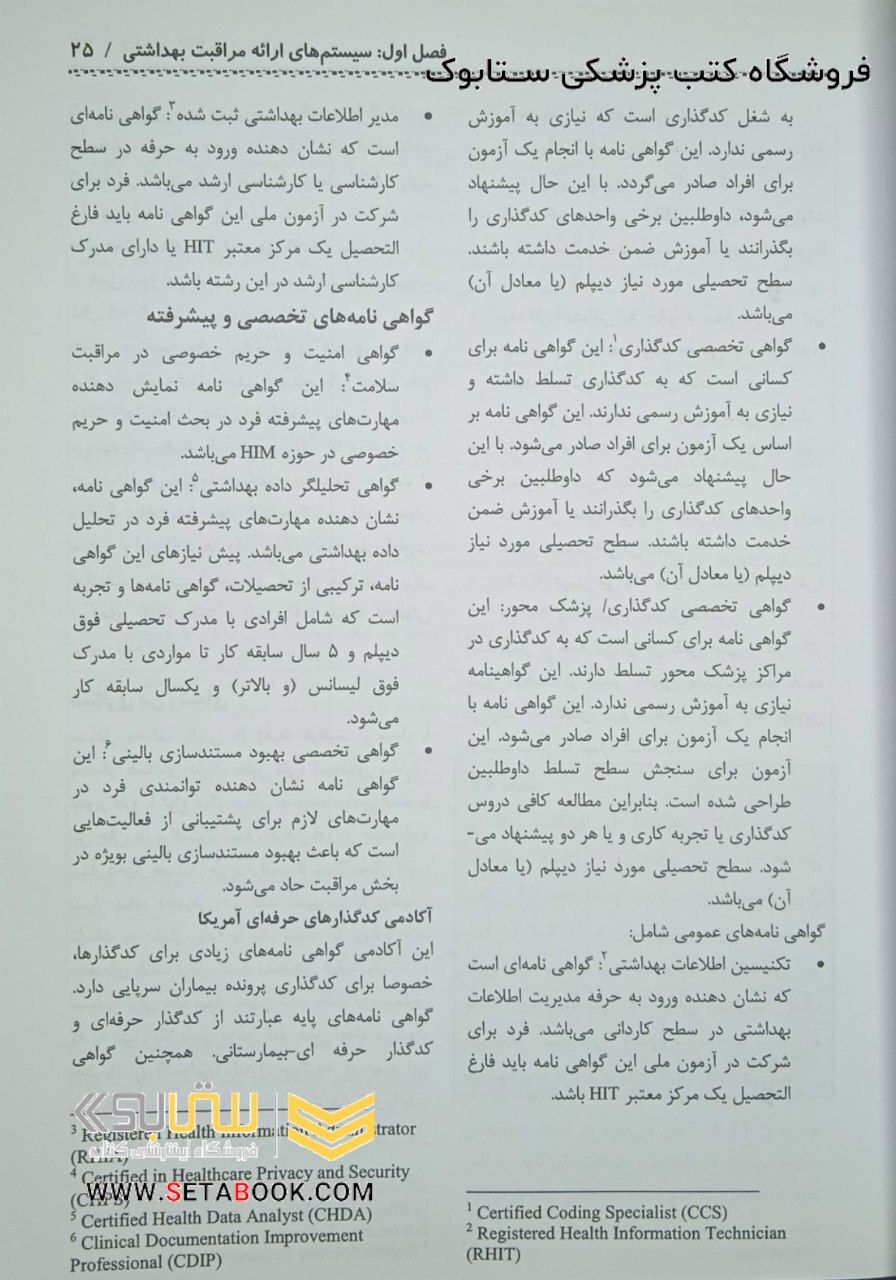 فصل اول: سیستم‌های ارائه مراقبت بهداشتی / ۲۵
فروشگاه کتب پزشکی ستابوک
به شغل کدگذاری است که نیازی به آموزش
رسمی ندارد. این گواهی نامه با انجام یک آزمون
برای افراد صادر می‌گردد. با این حال پیشنهاد
می‌شود، داوطلبین برخی واحدهای کدگذاری را
بگذرانند یا آموزش ضمن خدمت داشته باشند.
سطح تحصیلی مورد نیاز دیپلم (یا معادل آن)
می‌باشد.
• گواهی تخصصی کدگذاری۱: این گواهی نامه برای
کسانی است که به کدگذاری تسلط داشته و
نیازی به آموزش رسمی ندارند. این گواهی نامه بر
اساس یک آزمون برای افراد صادر می‌شود. با این
حال پیشنهاد می‌شود که داوطلبین برخی
واحدهای کدگذاری را بگذرانند یا آموزش ضمن
خدمت داشته باشند. سطح تحصیلی مورد نیاز
دیپلم (یا معادل آن) می‌باشد.
• گواهی تخصصی کدگذاری/ پزشک محور: این
گواهی نامه برای کسانی است که به کدگذاری در
مراکز پزشک محور تسلط دارند. این گواهینامه
نیازی به آموزش رسمی ندارد. این گواهی نامه با
انجام یک آزمون برای افراد صادر می‌شود. این
آزمون برای سنجش سطح تسلط داوطلبین
طراحی شده است. بنابراین مطالعه کافی دروس
کدگذاری یا تجربه کاری و یا هر دو پیشنهاد می-
شود. سطح تحصیلی مورد نیاز دیپلم (یا معادل
آن) می‌باشد.
گواهی نامه‌های عمومی شامل:
• تکنیسین اطلاعات بهداشتی۲: گواهی نامه‌ای است
که نشان دهنده ورود به حرفه مدیریت اطلاعات
بهداشتی در سطح کاردانی می‌باشد. فرد برای
شرکت در آزمون ملی این گواهی نامه باید فارغ
التحصیل یک مرکز معتبر HIT باشد.
1 Certified Coding Specialist (CCS)
2 Registered Health Information Technician
(RHIT)
• مدیر اطلاعات بهداشتی ثبت شده۳: گواهی نامه‌ای
است که نشان دهنده ورود به حرفه در سطح
کارشناسی یا کارشناسی ارشد می‌باشد. فرد برای
شرکت در آزمون ملی این گواهی نامه باید فارغ
التحصیل یک مرکز معتبر HIT یا دارای مدرک
کارشناسی ارشد در این رشته باشد.
گواهی نامه‌های تخصصی و پیشرفته
• گواهی امنیت و حریم خصوصی در مراقبت
سلامت۴: این گواهی نامه نمایش دهنده
مهارت‌های پیشرفته فرد در بحث امنیت و حریم
خصوصی در حوزه HIM می‌باشد.
• گواهی تحلیلگر داده بهداشتی۵: این گواهی نامه،
نشان دهنده مهارت‌های پیشرفته فرد در تحلیل
داده بهداشتی می‌باشد. پیش نیازهای این گواهی
نامه، ترکیبی از تحصیلات، گواهی نامه‌ها و تجربه
است که شامل افرادی با مدرک تحصیلی فوق
دیپلم و ۵ سال سابقه کار تا مواردی با مدرک
فوق لیسانس (و بالاتر) و یکسال سابقه کار
می‌شود.
• گواهی تخصصی بهبود مستندسازی بالینی۶: این
گواهی نامه نشان دهنده توانمندی فرد در
مهارت‌های لازم برای پشتیبانی از فعالیت‌هایی
است که باعث بهبود مستندسازی بالینی بویژه در
بخش مراقبت حاد می‌شود.
آکادمی کدگذارهای حرفه‌ای آمریکا
این آکادمی گواهی نامه‌های زیادی برای کدگذارها،
خصوصا برای کدگذاری پرونده بیماران سرپایی دارد.
گواهی نامه‌های پایه عبارتند از کدگذار حرفه‌ای و
کدگذار حرفه ای-بیمارستانی. همچنین گواهی
3 Registered Health Information Administrator
(RHIA)
4 Certified in Healthcare Privacy and Security
(CHPS)
5 Certified Health Data Analyst (CHDA)
6 Clinical Documentation Improvement
Professional (CDIP)
ستابوک
فروشگاه اینترنتی کتاب
WWW.SETABOOK.COM